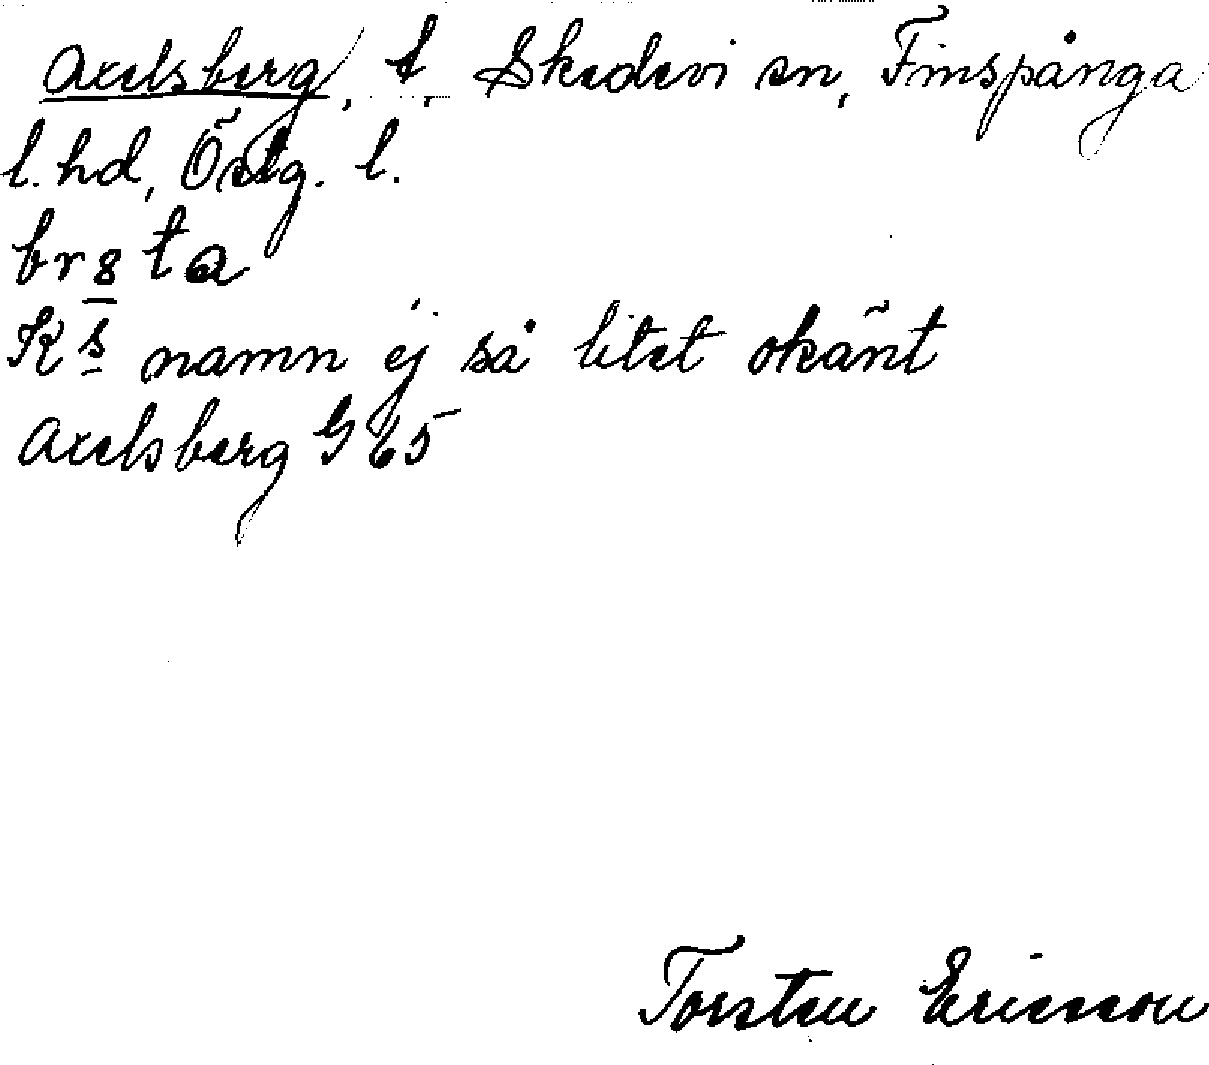 Axelsberg, t. Skedevi sn, Finspånga
l. hd, Östg. l.
br 8 ta
Ks namn ej så litet okänt
Axelsberg G 65
Torsten Ericsson